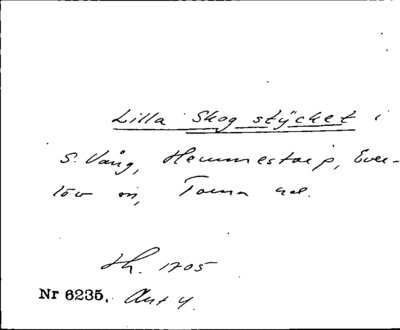 Lilla Skog stÿcket i
S. Vång, Hemmestorp, Ever-
löv sn, Torna hd.
Lh. 1705
Nr 6235. Akt 4.